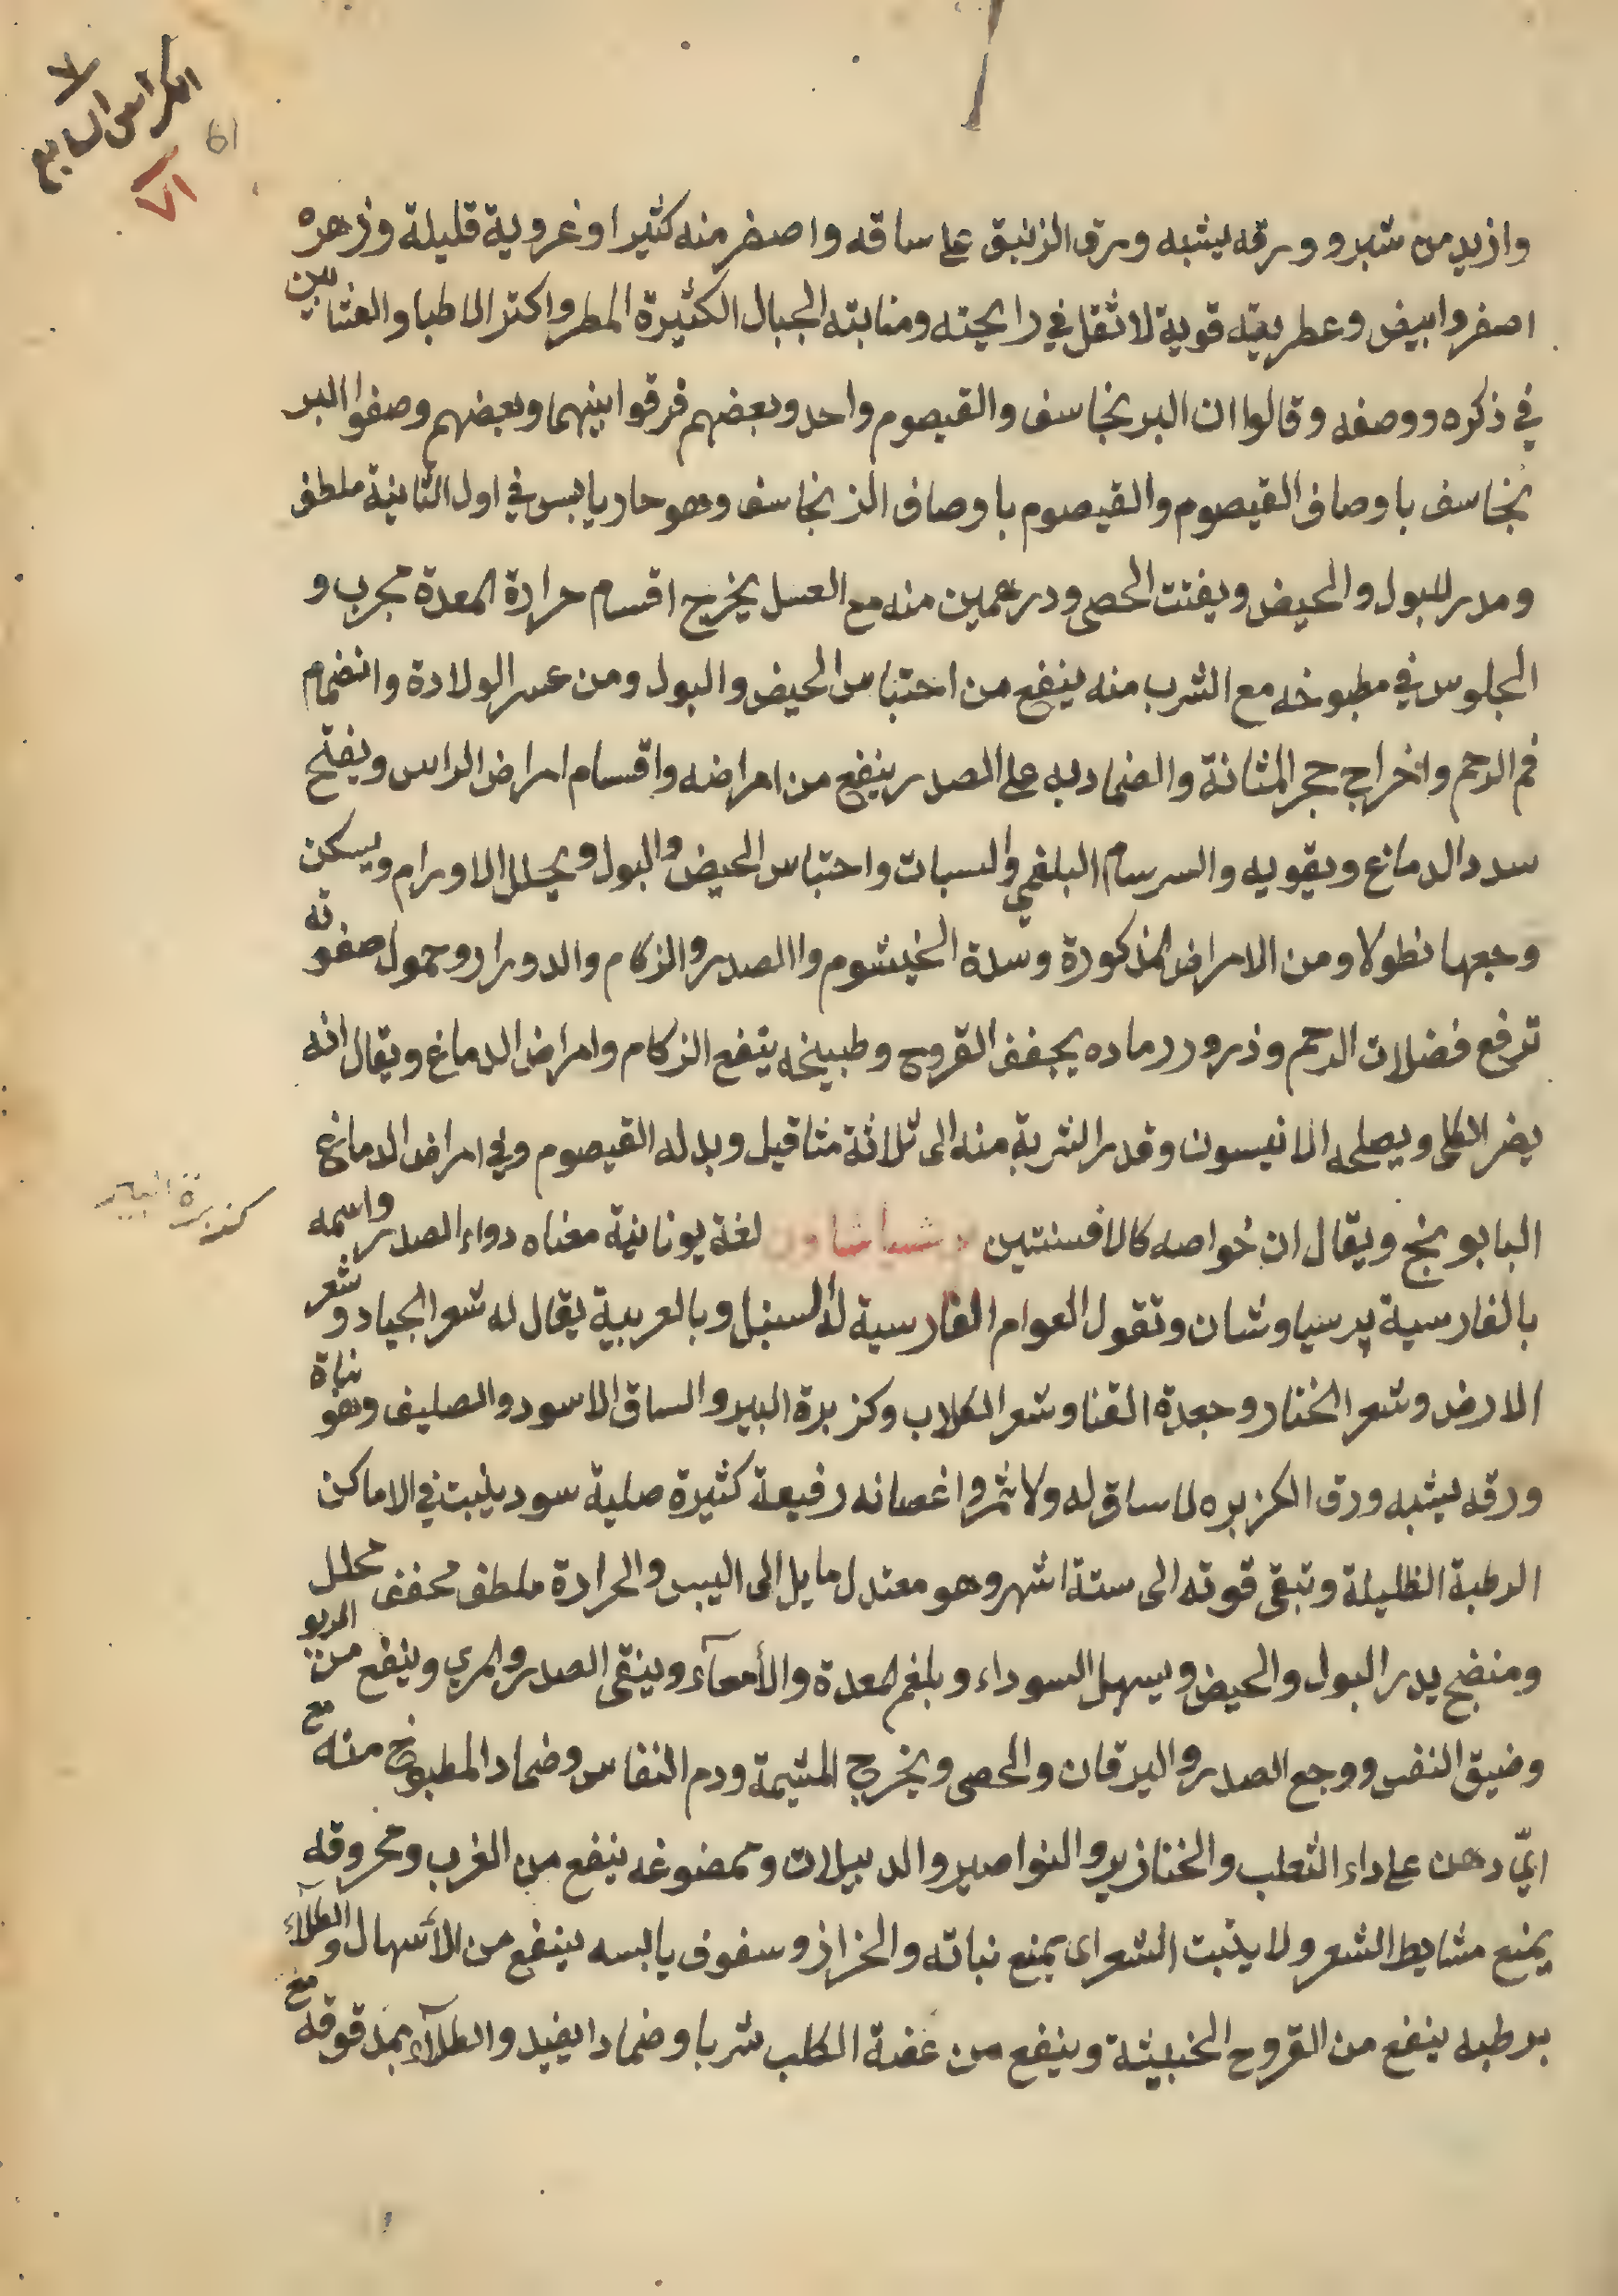 ٧
الكراس السابع
61
٧١
وازيد من شبر وورقه يشبه ورق الزنبق على ساقه واصغر منه كثيرا وغروية قليلة وزهره
اصفر وابيض وعطريته قوية لا ثقل في رايحته ومنابته الجبال الكثيرة المطر واكثر الاطبا والعشابين
في ذكره ووصفه وقالوا ان البرنجاسف والقيصوم واحد وبعضهم فرقوا بينهما وبعضهم وصفوا البر
نجاسف باوصاف القيصوم والقيصوم باوصاف الزنجاسف وهو حار يابس في اول الثانية ملطف
ومدر للبول والحيض ويفتت الحصى ودرهمين منه مع العسل يخرج اقسام حرارة المعدة مجرب و
الجلوس في مطبوخه مع الشرب منه ينفع من احتباس الحيض والبول ومن عسر الولادة وانضمام
فم الرحم واخراج حجر المثانة والضماد به على الصدر ينفع من امراضه واقسام امراض الراس ويفتح
سدد الدماغ ويقويه والسرسام البلغمي والسبات واحتباس الحيض والبول ويحلل الاورام ويسكن
وجعها نطولا ومن الامراض المذكورة وسدة الخيشوم واالصدر والزكام والدورار وحمول صفوته
ترفع فضلات الرحم وذرور رماده يجفف القروح وطبيخه ينفع الزكام وامراض الدماغ ويقال انه
يضر الكلى ويصلحه الانيسون وقدر الشربة منه الى ثلاثة مثاقيل وبدله القيصوم وفي امراض الدماغ
البابونج ويقال ان خواصه كالافسنتين برشياشاون لغة يونانية معناه دواء الصدر واسمه
كزبرة البير
بالفارسية پرسياوشان وتقول العوام الفارسية له السنبل وبالعربية يقال له شعر الجياد وشعر
الارض وشعر الخنار وجعدة القنا وشعر الكلاب وكزبرة البير والساق الاسود والصليف وهو نباة
ورقه يشبه ورق الكزبره لا ساق له ولا ثمر واغصانه رفيعة كثيرة صلية سود ينبت في الاماكن
الرطبة الظليلة وتبقى قوته الى ستة اشهر وهو معتدل مايل الى اليبس والحرارة ملطف مجفف محلل
ومنضج يدر البول والحيض ويسهل السوداء وبلغم المعدة والأمعآء وينقى الصدر والمري وينفع من الربو
وضيق النفس ووجع الصدر واليرقان والحصى ويخرج المشيمة ودم النفاس وضماد المطبوخ منه مع
ايّ دهن على داء الثعلب والخنازير والنواصير والدبيلات وممضوغه ينفع من الغرب ومحروقه
يمنع مشايط الشعر ولا ينبت الشعر اى يمنع نباته والخراز وسفوف يابسه ينفع من الأسهال والطلآء
برطبه ينفع من القروح الخبيثة وينفع من عضة الكلب شربا وضمادا يفيد والطلآء بمدقوقه مع